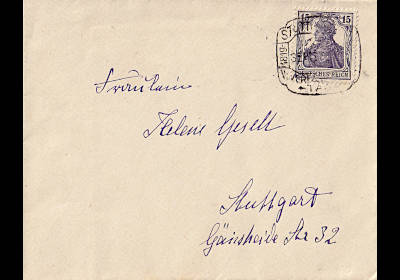 15 15
STUTT
DEUTSCHES REICH
Fräulein
Helene Geselt
Stuttgart
Gänsheide Str 32